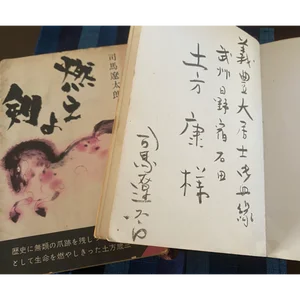 司馬遼太郎
燃えよ
剣
歴史に無類の爪跡を残し
として生命を燃やしきった土方歳
義豊大居士御血縁
武州日野宿石田
土方康様
司馬遼太郎